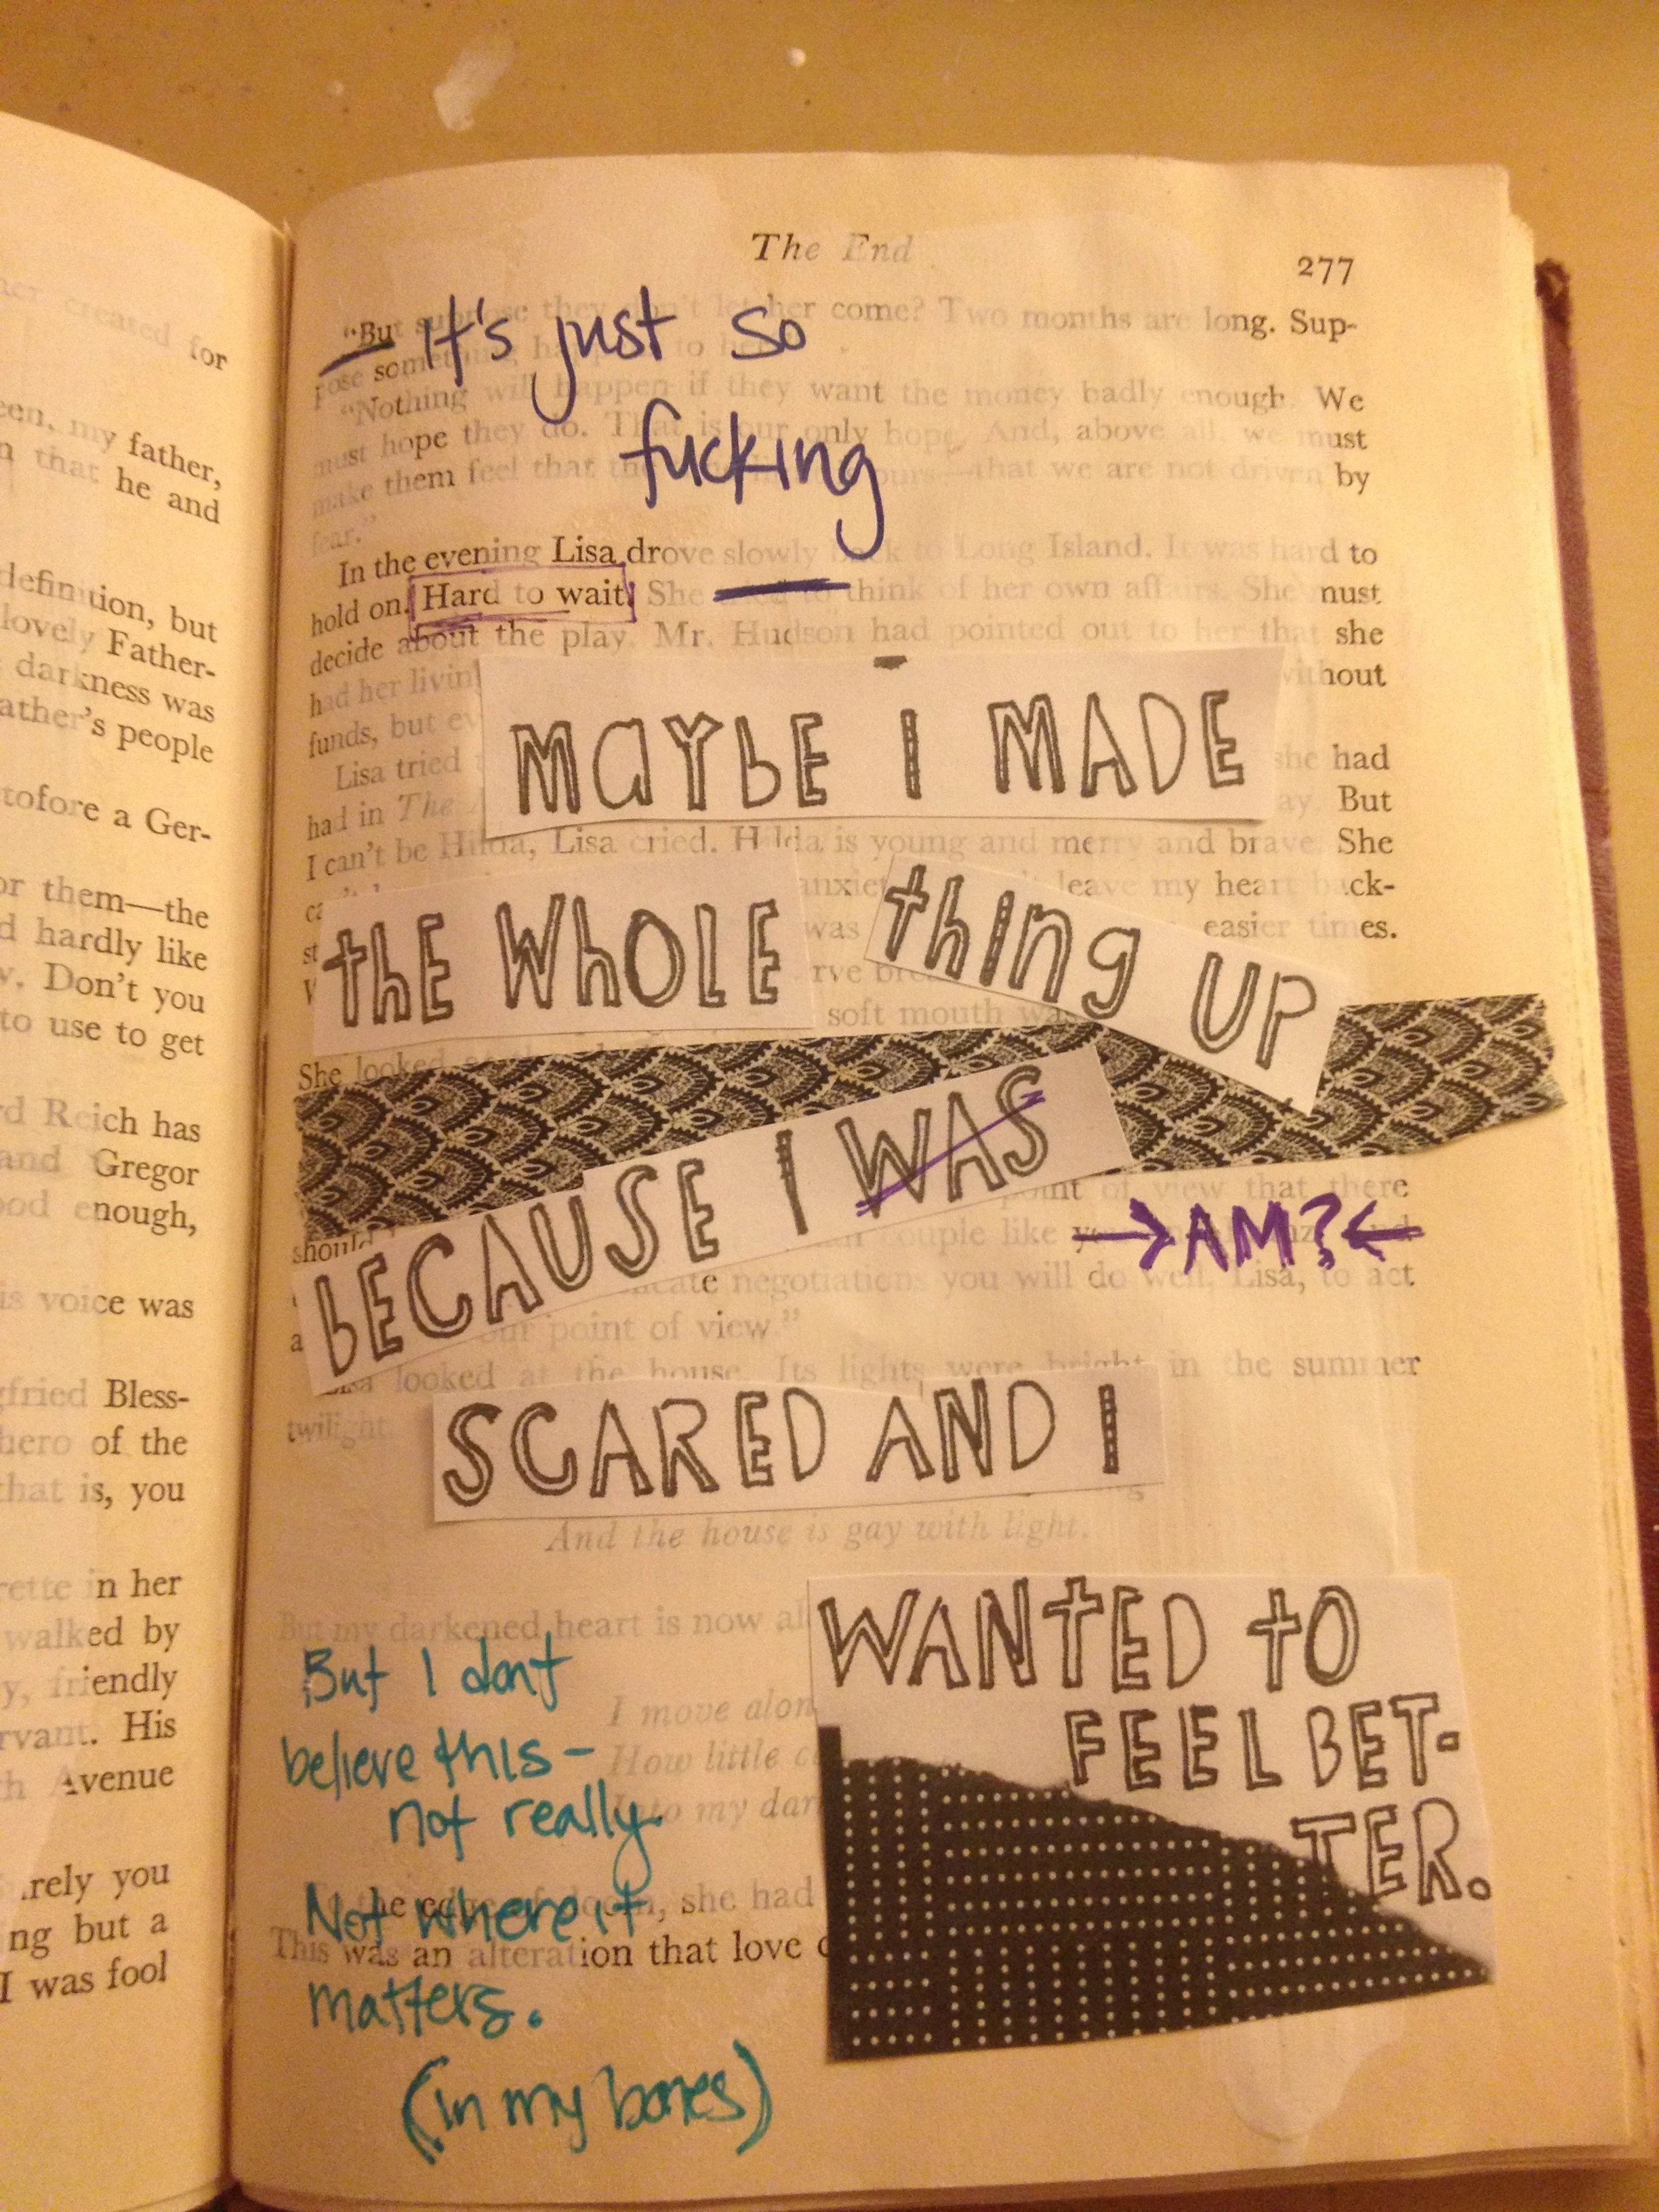 her created for
my father,
that he and
definition, but
lovely Father-
darkness was
father's people
tofore a Ger-
or them—the
hardly like
Don't you
to use to get
Reich has
and Gregor
enough,
is voice was
gfried Bless-
hero of the
that is, you
rette in her
walked by
friendly
rvant. His
Avenue
rely you
ng but a
I was fool
The End
277
"But suppose they don't let her come? Two months are long. Sup-
pose something happens to her?"
It's just so
"Nothing will happen if they want the money badly enough. We
must hope they do. That is our only hope. And, above all, we must
fucking
make them feel that the ours—that we are not driven by
fear."
In the evening Lisa drove slowly back to Long Island. It was hard to
hold on. Hard to wait. She tried to think of her own affairs. She must
decide about the play. Mr. Hudson had pointed out to her that she
had her living without
funds, but
Lisa tried she had
MAYBE I MADE
had in The But
I can't be Hilda, Lisa cried. Hilda is young and merry and brave. She
leave my heart back-
was easier times.
THE WHOLE THING UP
soft mouth was
She looked
BECAUSE I WAS
→AM?←
point of view that there
should couple like
negotiations you will do well, Lisa, to act
our point of view."
Lisa looked at the house. Its lights were bright in the summer
twilight.
SCARED AND I
And the house is gay with light.
But my darkened heart is now
WANTED TO
FEEL BET-
TER.
I move alon
How little
Into my dar
But I dont
believe this-
not really.
Not where it
matters.
(in my bones)
the edge of doom, she had
This was an alteration that love